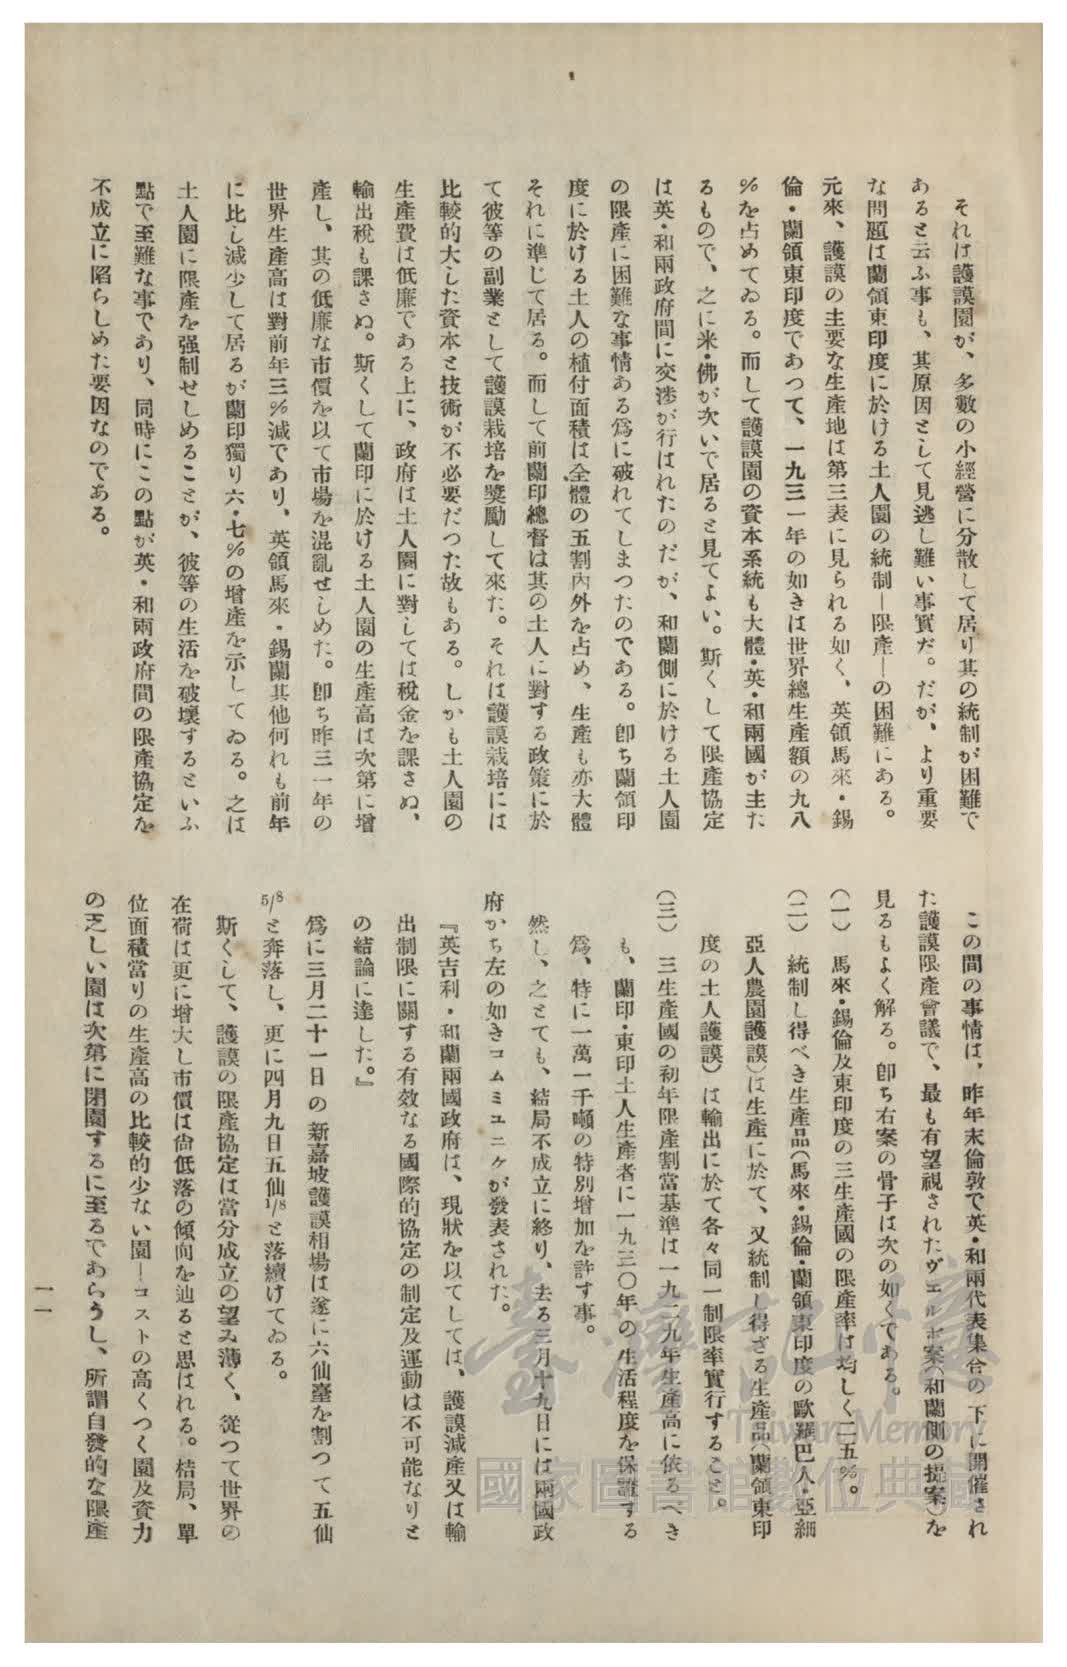 それは護謨園が、多數の小經營に分散して居り其の統制が困難で
あると云ふ事も、其原因として見逃し難い事實だ。だが、より重要
な問題は蘭領東印度に於ける土人園の統制―限產―の困難にある。
元來、護謨の主要な生產地は第三表に見られる如く、英領馬來・錫
倫・蘭領東印度であつて、一九三一年の如きは世界總生產額の九八
%を占めてゐる。而して護謨園の資本系統も大體・英・和兩國が主た
るもので、之に米・佛が次いで居ると見てよい。斯くして限產協定
は英・和兩政府間に交渉が行はれたのだが、和蘭側に於ける土人園
の限產に困難な事情ある爲に破れてしまつたのである。卽ち蘭領印
度に於ける土人の植付面積は全體の五割內外を占め、生產も亦大體
それに準じて居る。而して前蘭印總督は其の土人に對する政策に於
て彼等の副業として護謨栽培を獎勵して來た。それは護謨栽培には
比較的大した資本と技術が不必要だつた故もある。しかも土人園の
生產費は低廉である上に、政府は土人園に對しては稅金を課さぬ、
輸出稅も課さぬ。斯くして蘭印に於ける土人園の生產高は次第に增
產し、其の低廉な市價を以て市場を混亂せしめた。卽ち昨三一年の
世界生產高は對前年三%減であり、英領馬來・錫蘭其他何れも前年
に比し減少して居るが蘭印獨り六・七%の增產を示してゐる。之は
土人園に限產を强制せしめることが、彼等の生活を破壞するといふ
點で至難な事であり、同時にこの點が英・和兩政府間の限產協定を
不成立に陷らしめた要因なのである。
この間の事情は、昨年末倫敦で英・和兩代表集合の下に開催され
た護謨限產會議で、最も有望視されたヴエルボ案(和蘭側の提案)を
見るもよく解る。卽ち右案の骨子は次の如くである。
(一) 馬來・錫倫及東印度の三生產國の限產率は均しく二五%。
(二) 統制し得べき生產品(馬來・錫倫・蘭領東印度の歐羅巴人・亞細
亞人農園護謨)は生產に於て、又統制し得ざる生產品(蘭領東印
度の土人護謨)は輸出に於て各々同一制限率實行すること。
(三) 三生產國の初年限產割當基準は一九二九年生產高に依るべき
も、蘭印・東印土人生產者に一九三〇年の生活程度を保證する
爲、特に一萬一千噸の特別增加を許す事。
然し、之とても、結局不成立に終り、去る三月十九日には兩國政
府から左の如きコムミユニケが發表された。
『英吉利・和蘭兩國政府は、現狀を以てしては、護謨減產又は輸
出制限に關する有效なる國際的協定の制定及運動は不可能なりと
の結論に達した。』
爲に三月二十一日の新嘉坡護謨相場は遂に六仙臺を割つて五仙
5/8と奔落し、更に四月九日五仙1/8と落續けてゐる。
斯くして、護謨の限產協定は當分成立の望み薄く、從つて世界の
在荷は更に增大し市價は尙低落の傾向を辿ると思はれる。桔局、單
位面積當りの生產高の比較的少ない園―コストの高くつく園及資力
の乏しい園は次第に閉園するに至るであらうし、所謂自發的な限產
一一
臺灣記憶
Taiwan Memory
國家圖書館數位典藏